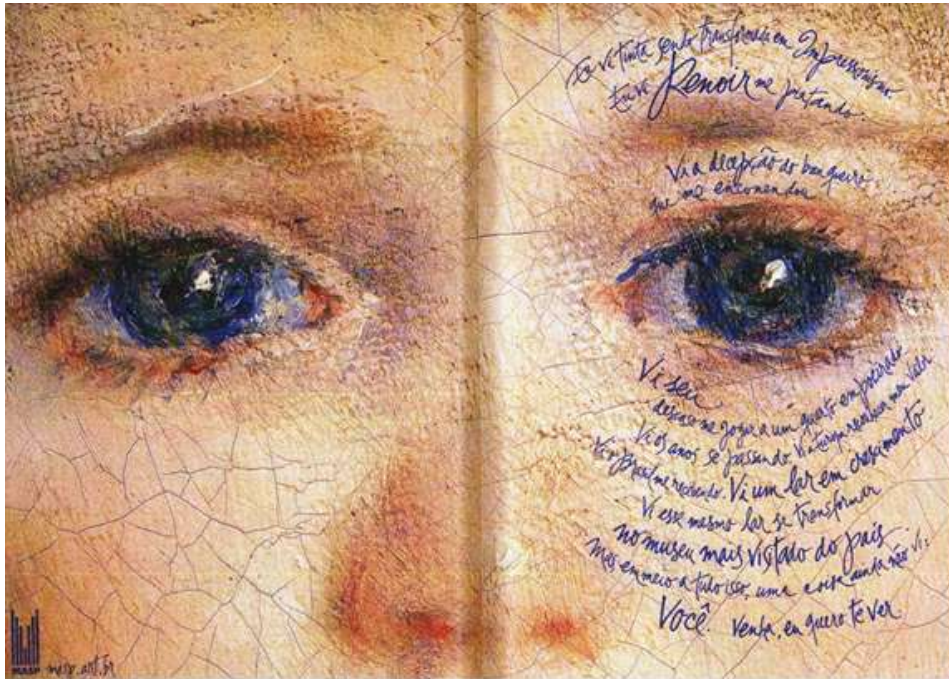 Eu vi tinta sendo transformada em Impressionismo.
Eu vi Renoir me pintando.
Vi a decepção do banqueiro
que me encomendou.
Vi seu
descaso me jogar a um quarto empoeirado
Vi os anos se passando. Vi a Europa reconhecer meu valor
Vi o Brasil me recebendo. Vi um lar em crescimento
Vi esse mesmo lar se transformar
no museu mais visitado do país
Mas em meio a tudo isso, uma coisa ainda não vi:
Você. Venha, eu quero te ver
masp masp.art.br